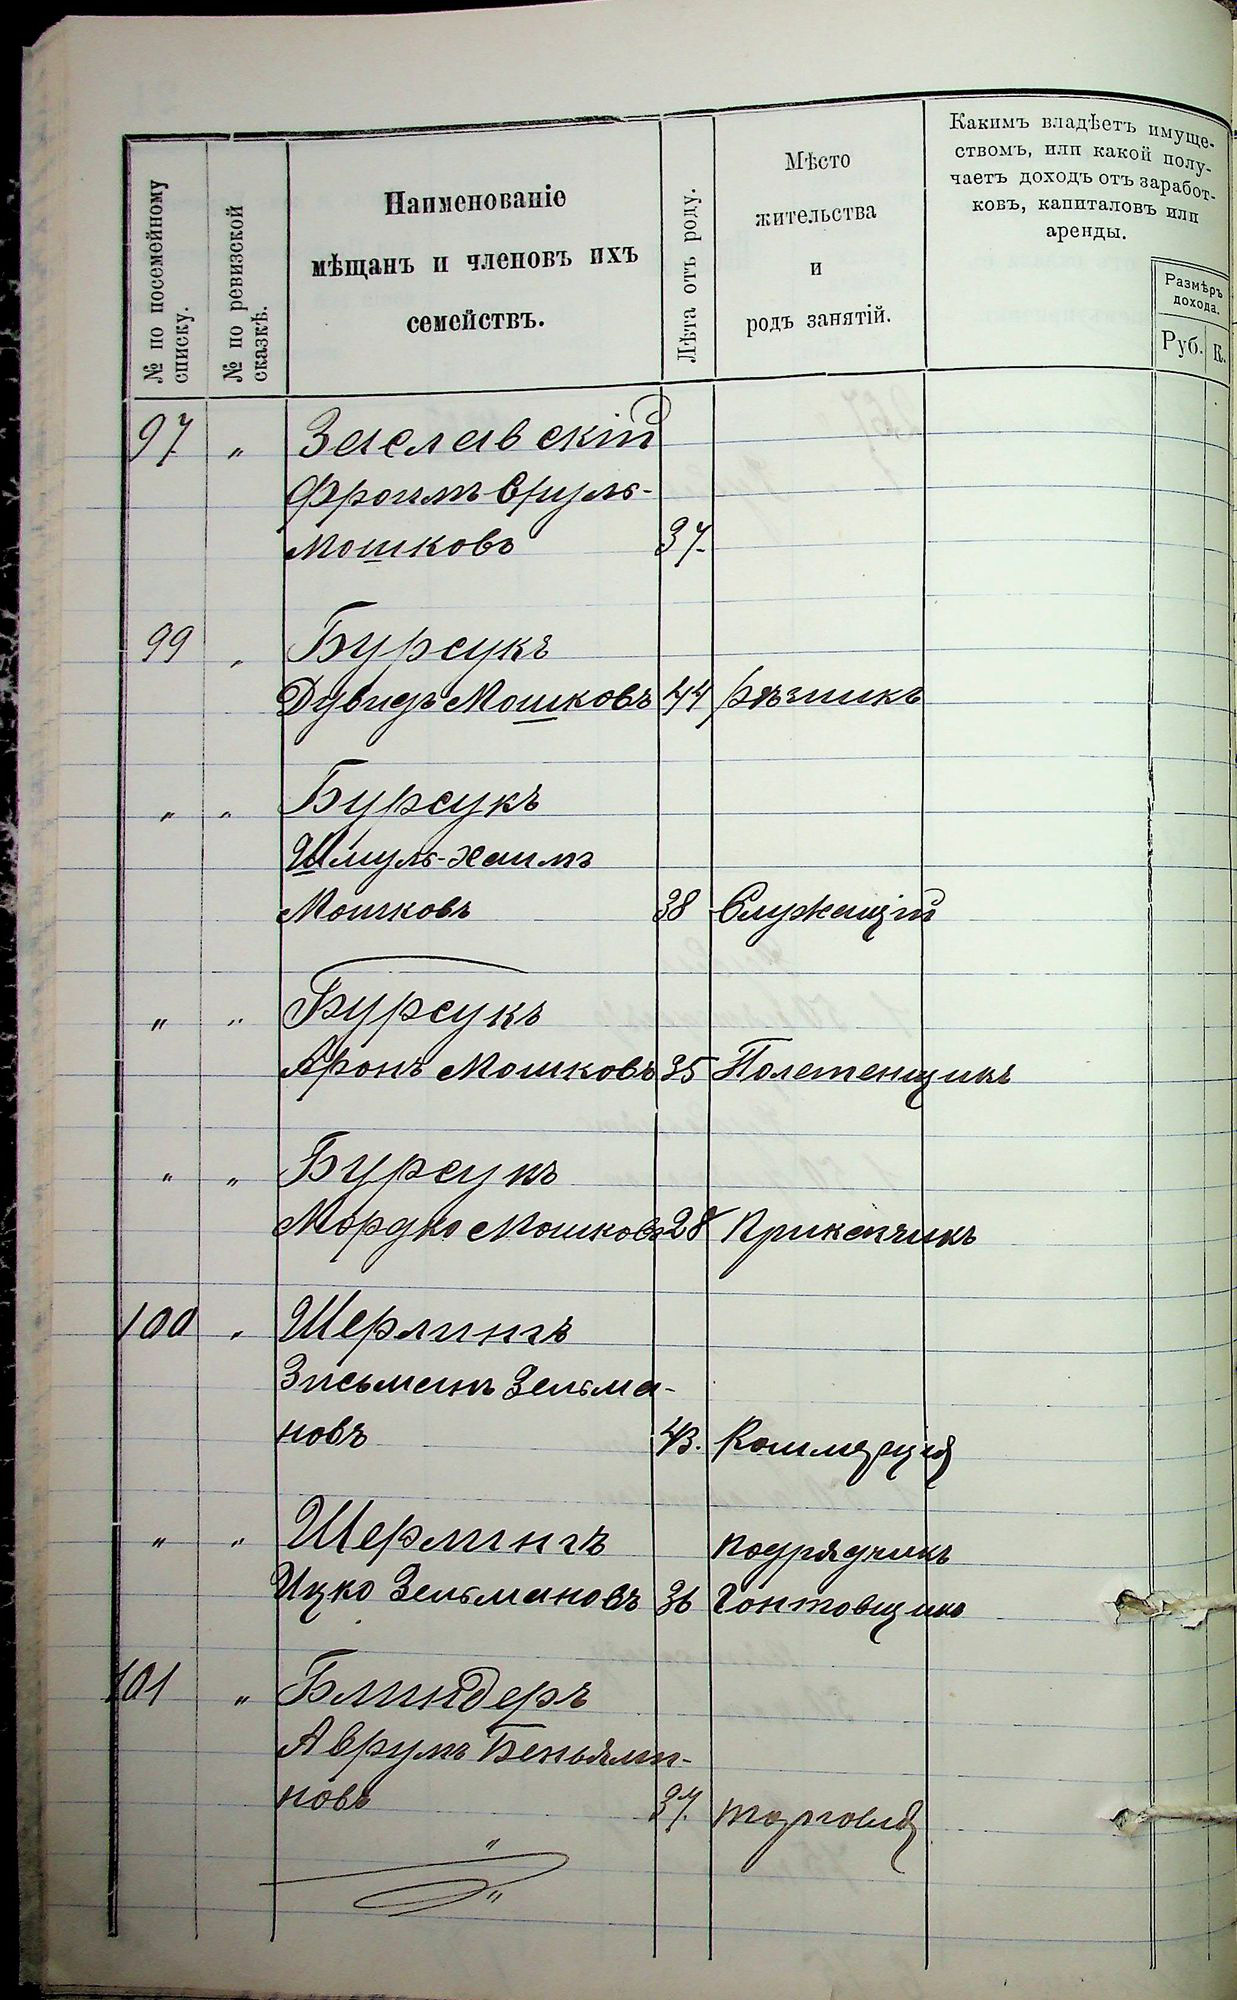 № по посемейному
списку.
№ по ревизской
сказкѣ.
Наименованіе
мѣщанъ и членовъ ихъ
семействъ.
Лѣта отъ роду.
Мѣсто
жительства
и
родъ занятій.
Какимъ владѣетъ имуще-
ствомъ, или какой полу-
чаетъ доходъ отъ заработ-
ковъ, капиталовъ или
аренды.
Размѣръ
дохода.
Руб. К.
97 „ Заславскій
Фроимъ Сруль-
Мошковъ 37.
99 „ Бурсукъ
Дувидъ Мошковъ 44 рѣзникъ
„ „ Бурсукъ
Шмуль-Хаимъ
Мошковъ 38 Служащій
„ „ Бурсукъ
Аронъ Мошковъ 35 Полетенщикъ
„ „ Бурсукъ
Мордко Мошковъ 28 Прикащикъ
100 „ Шерлингъ
Зисьманъ Зельма-
новъ 43. Коммерція
„ „ Шерлингъ подрядчикъ
Ицко Зельмановъ 36 Гонтовщикъ
101 „ Блиндеръ
Аврумъ Беньями-
новъ 37. торговля
„
„